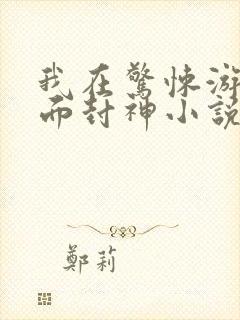 我在驚悚游
而封神小說
鄭莉